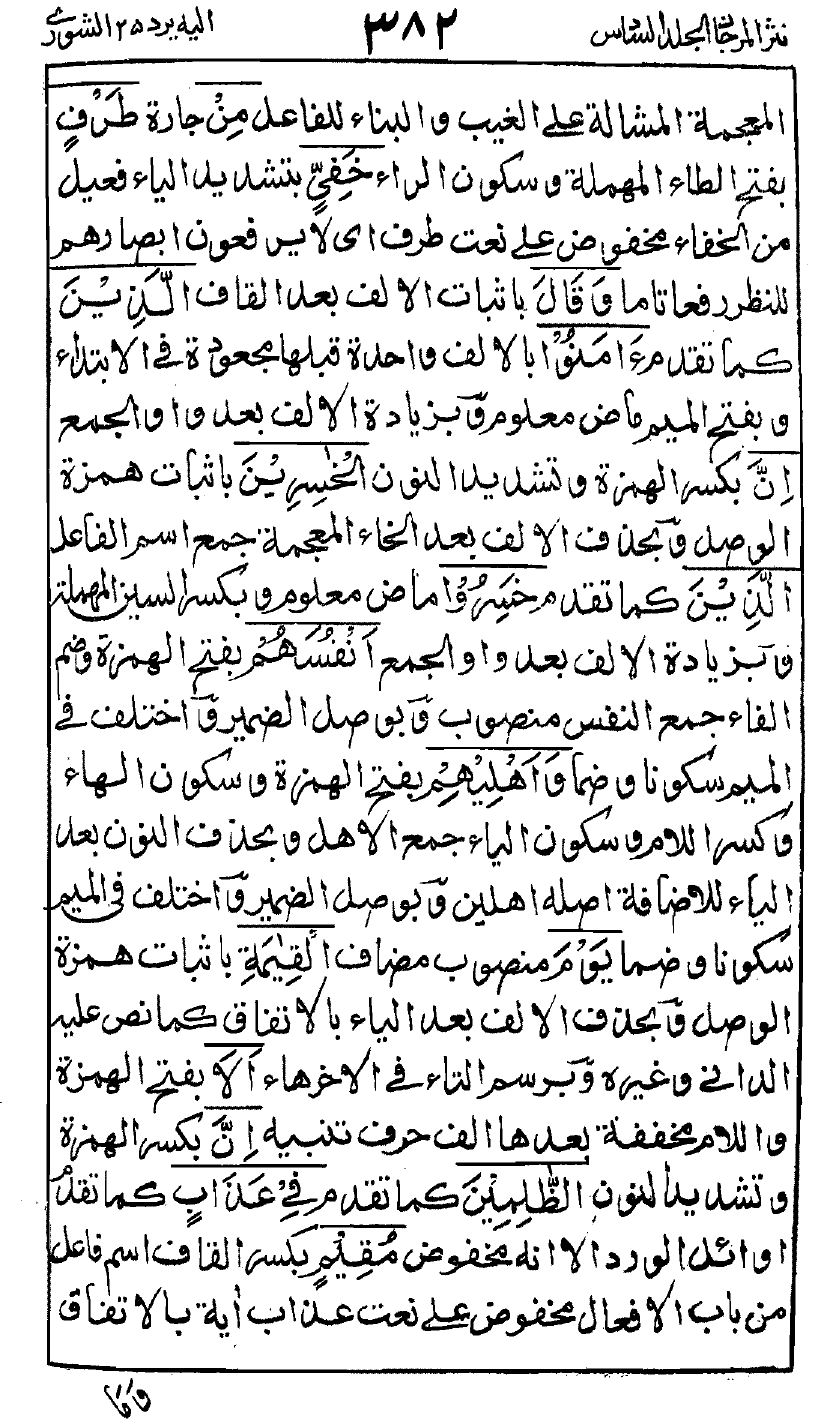 نثر المرجان الجلد السادس ٣٨٢ اليه يرد ٢٥ الشورى
المعجمة المشالة على الغيب و البناء للفاعل مِنْ جارة طَرْفٍ
بفتح الطاء المهملة و سكون الراء خَفِيٍّ بتشديد الياء فعيل
من الخفاء مخفوض على نعت طرف اى لا يرفعون ابصارهم
للنظر رفعا تاما وَ قَالَ باثبات الالف بعد القاف الَّذِيْنَ
كما تقدم ءَامَنُوْا بالالف واحدة قبلها مجعودة في الابتداء
و بفتح الميم ماض معلوم و بزيادة الالف بعد واو الجمع
اِنَّ بكسر الهمزة و تشديد النون الْخٰسِرِيْنَ باثبات همزة
الوصل و بحذف الالف بعد الخاء المعجمة جمع اسم الفاعل
الَّذِيْنَ كما تقدم خَسِرُوْا ماض معلوم و بكسر السين المهملة
و بزيادة الالف بعد واو الجمع اَنْفُسَهُمْ بفتح الهمزة و ضم
الفاء جمع النفس منصوب و بوصل الضمير و اختلف في
الميم سكونا و ضما وَ اَهْلِيْهِمْ بفتح الهمزة و سكون الهاء
و كسر اللام و سكون الياء جمع الاهل و بحذف النون بعد
الياء للاضافة اصله اهلين و بوصل الضمير و اختلف في الميم
سكونا و ضما يَوْمَ منصوب مضاف الْقِيٰمَةِ باثبات همزة
الوصل و بحذف الالف بعد الياء بالاتفاق كما نص عليه
الداني و غيره و برسم التاء في الاخر هاء اَلَا بفتح الهمزة
و اللام مخففة بعدها الف حرف تنبيه اِنَّ بكسر الهمزة
و تشديد النون الظّٰلِمِيْنَ كما تقدم فِيْ عَذَابٍ كما تقدم
اوائل الورد الا انه مخفوض مُقِيْمٍ بكسر القاف اسم فاعل
من باب الافعال مخفوض على نعت عذاب أية بالاتفاق
وَمَا